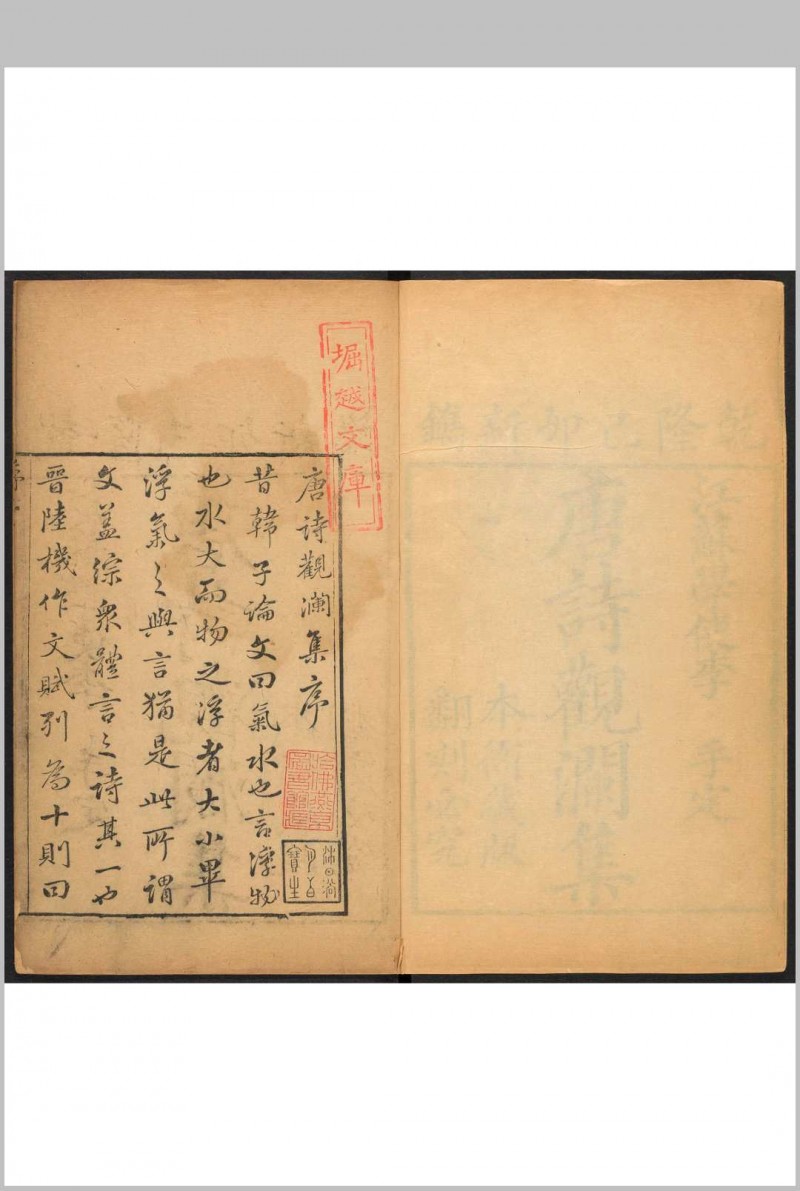 堀越文庫
唐詩觀瀾集序
昔韓子論文曰氣水也言浮物
也水大而物之浮者大小畢
浮氣之與言猶是此所謂
文蓋綜衆體言之詩其一也
晉陸機作文賦列為十則曰
唐詩觀瀾集
本衙藏版
翻刻必究